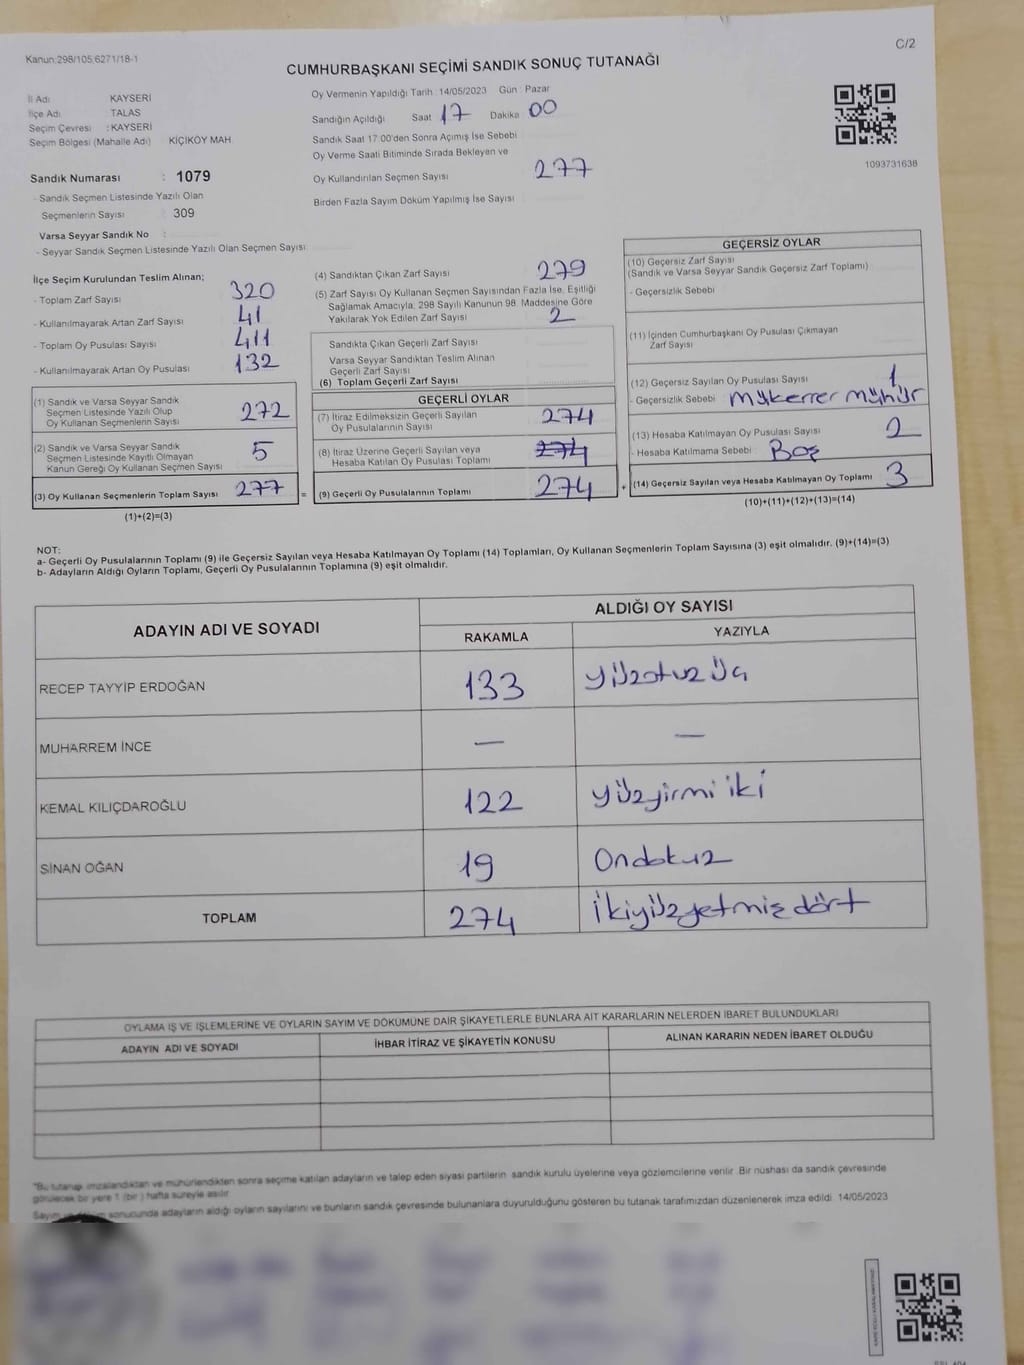 Kanun:298/105;6271/18-1
C/2
CUMHURBAŞKANI SEÇİMİ SANDIK SONUÇ TUTANAĞI
İl Adı KAYSERİ
İlçe Adı TALAS
Seçim Çevresi : KAYSERİ
Seçim Bölgesi (Mahalle Adı) KİÇİKÖY MAH
Sandık Numarası : 1079
- Sandık Seçmen Listesinde Yazılı Olan
Seçmenlerin Sayısı 309
Varsa Seyyar Sandık No :
- Seyyar Sandık Seçmen Listesinde Yazılı Olan Seçmen Sayısı
Oy Vermenin Yapıldığı Tarih : 14/05/2023 Gün : Pazar
Sandığın Açıldığı Saat 17 Dakika 00
Sandık Saat 17:00'den Sonra Açımış İse Sebebi
Oy Verme Saati Bitiminde Sırada Bekleyen ve
Oy Kullandırılan Seçmen Sayısı 277
Birden Fazla Sayım Döküm Yapılmış İse Sayısı
1093731638
İlçe Seçim Kurulundan Teslim Alınan;
- Toplam Zarf Sayısı 320
- Kullanılmayarak Artan Zarf Sayısı 41
- Toplam Oy Pusulası Sayısı 411
- Kullanılmayarak Artan Oy Pusulası 132
(1) Sandık ve Varsa Seyyar Sandık
Seçmen Listesinde Yazılı Olup
Oy Kullanan Seçmenlerin Sayısı 272
(2) Sandık ve Varsa Seyyar Sandık
Seçmen Listesinde Kayıtlı Olmayan
Kanun Gereği Oy Kullanan Seçmen Sayısı 5
(3) Oy Kullanan Seçmenlerin Toplam Sayısı 277 =
(1)+(2)=(3)
(4) Sandıktan Çıkan Zarf Sayısı 279
(5) Zarf Sayısı Oy Kullanan Seçmen Sayısından Fazla İse, Eşitliği
Sağlamak Amacıyla; 298 Sayılı Kanunun 98. Maddesine Göre
Yakılarak Yok Edilen Zarf Sayısı 2
Sandıkta Çıkan Geçerli Zarf Sayısı
Varsa Seyyar Sandıktan Teslim Alınan
Geçerli Zarf Sayısı
(6) Toplam Geçerli Zarf Sayısı
GEÇERLİ OYLAR
(7) İtiraz Edilmeksizin Geçerli Sayılan
Oy Pusulalarının Sayısı 274
(8) İtiraz Üzerine Geçerli Sayılan veya
Hesaba Katılan Oy Pusulası Toplamı 274
(9) Geçerli Oy Pusulalarının Toplamı 274 +
GEÇERSİZ OYLAR
(10) Geçersiz Zarf Sayısı
(Sandık ve Varsa Seyyar Sandık Geçersiz Zarf Toplamı)
- Geçersizlik Sebebi
(11) İçinden Cumhurbaşkanı Oy Pusulası Çıkmayan
Zarf Sayısı
(12) Geçersiz Sayılan Oy Pusulası Sayısı 1
- Geçersizlik Sebebi mükerrer mühür
(13) Hesaba Katılmayan Oy Pusulası Sayısı 2
- Hesaba Katılmama Sebebi Boş
(14) Geçersiz Sayılan veya Hesaba Katılmayan Oy Toplamı 3
(10)+(11)+(12)+(13)=(14)
NOT:
a- Geçerli Oy Pusulalarının Toplamı (9) ile Geçersiz Sayılan veya Hesaba Katılmayan Oy Toplamı (14) Toplamları, Oy Kullanan Seçmenlerin Toplam Sayısına (3) eşit olmalıdır. (9)+(14)=(3)
b- Adayların Aldığı Oyların Toplamı, Geçerli Oy Pusulalarının Toplamına (9) eşit olmalıdır.
ADAYIN ADI VE SOYADI
ALDIĞI OY SAYISI
RAKAMLA YAZIYLA
RECEP TAYYİP ERDOĞAN 133 yüzotuz üç
MUHARREM İNCE — —
KEMAL KILIÇDAROĞLU 122 yüzyirmi iki
SİNAN OĞAN 19 Ondokuz
TOPLAM 274 ikiyüzyetmiş dört
OYLAMA İŞ VE İŞLEMLERİNE VE OYLARIN SAYIM VE DÖKÜMÜNE DAİR ŞİKAYETLERLE BUNLARA AİT KARARLARIN NELERDEN İBARET BULUNDUKLARI
ADAYIN ADI VE SOYADI İHBAR İTİRAZ VE ŞİKAYETİN KONUSU ALINAN KARARIN NEDEN İBARET OLDUĞU
*Bu tutanak imzalandıktan ve mühürlendikten sonra seçime katılan adayların ve talep eden siyasi partilerin sandık kurulu üyelerine veya gözlemcilerine verilir. Bir nüshası da sandık çevresinde
görülecek bir yere 1 (bir) hafta süreyle asılır.
Sayım sonucunda adayların aldığı oyların sayılarını ve bunların sandık çevresinde bulunanlara duyurulduğunu gösteren bu tutanak tarafımızdan düzenlenerek imza edildi. 14/05/2023